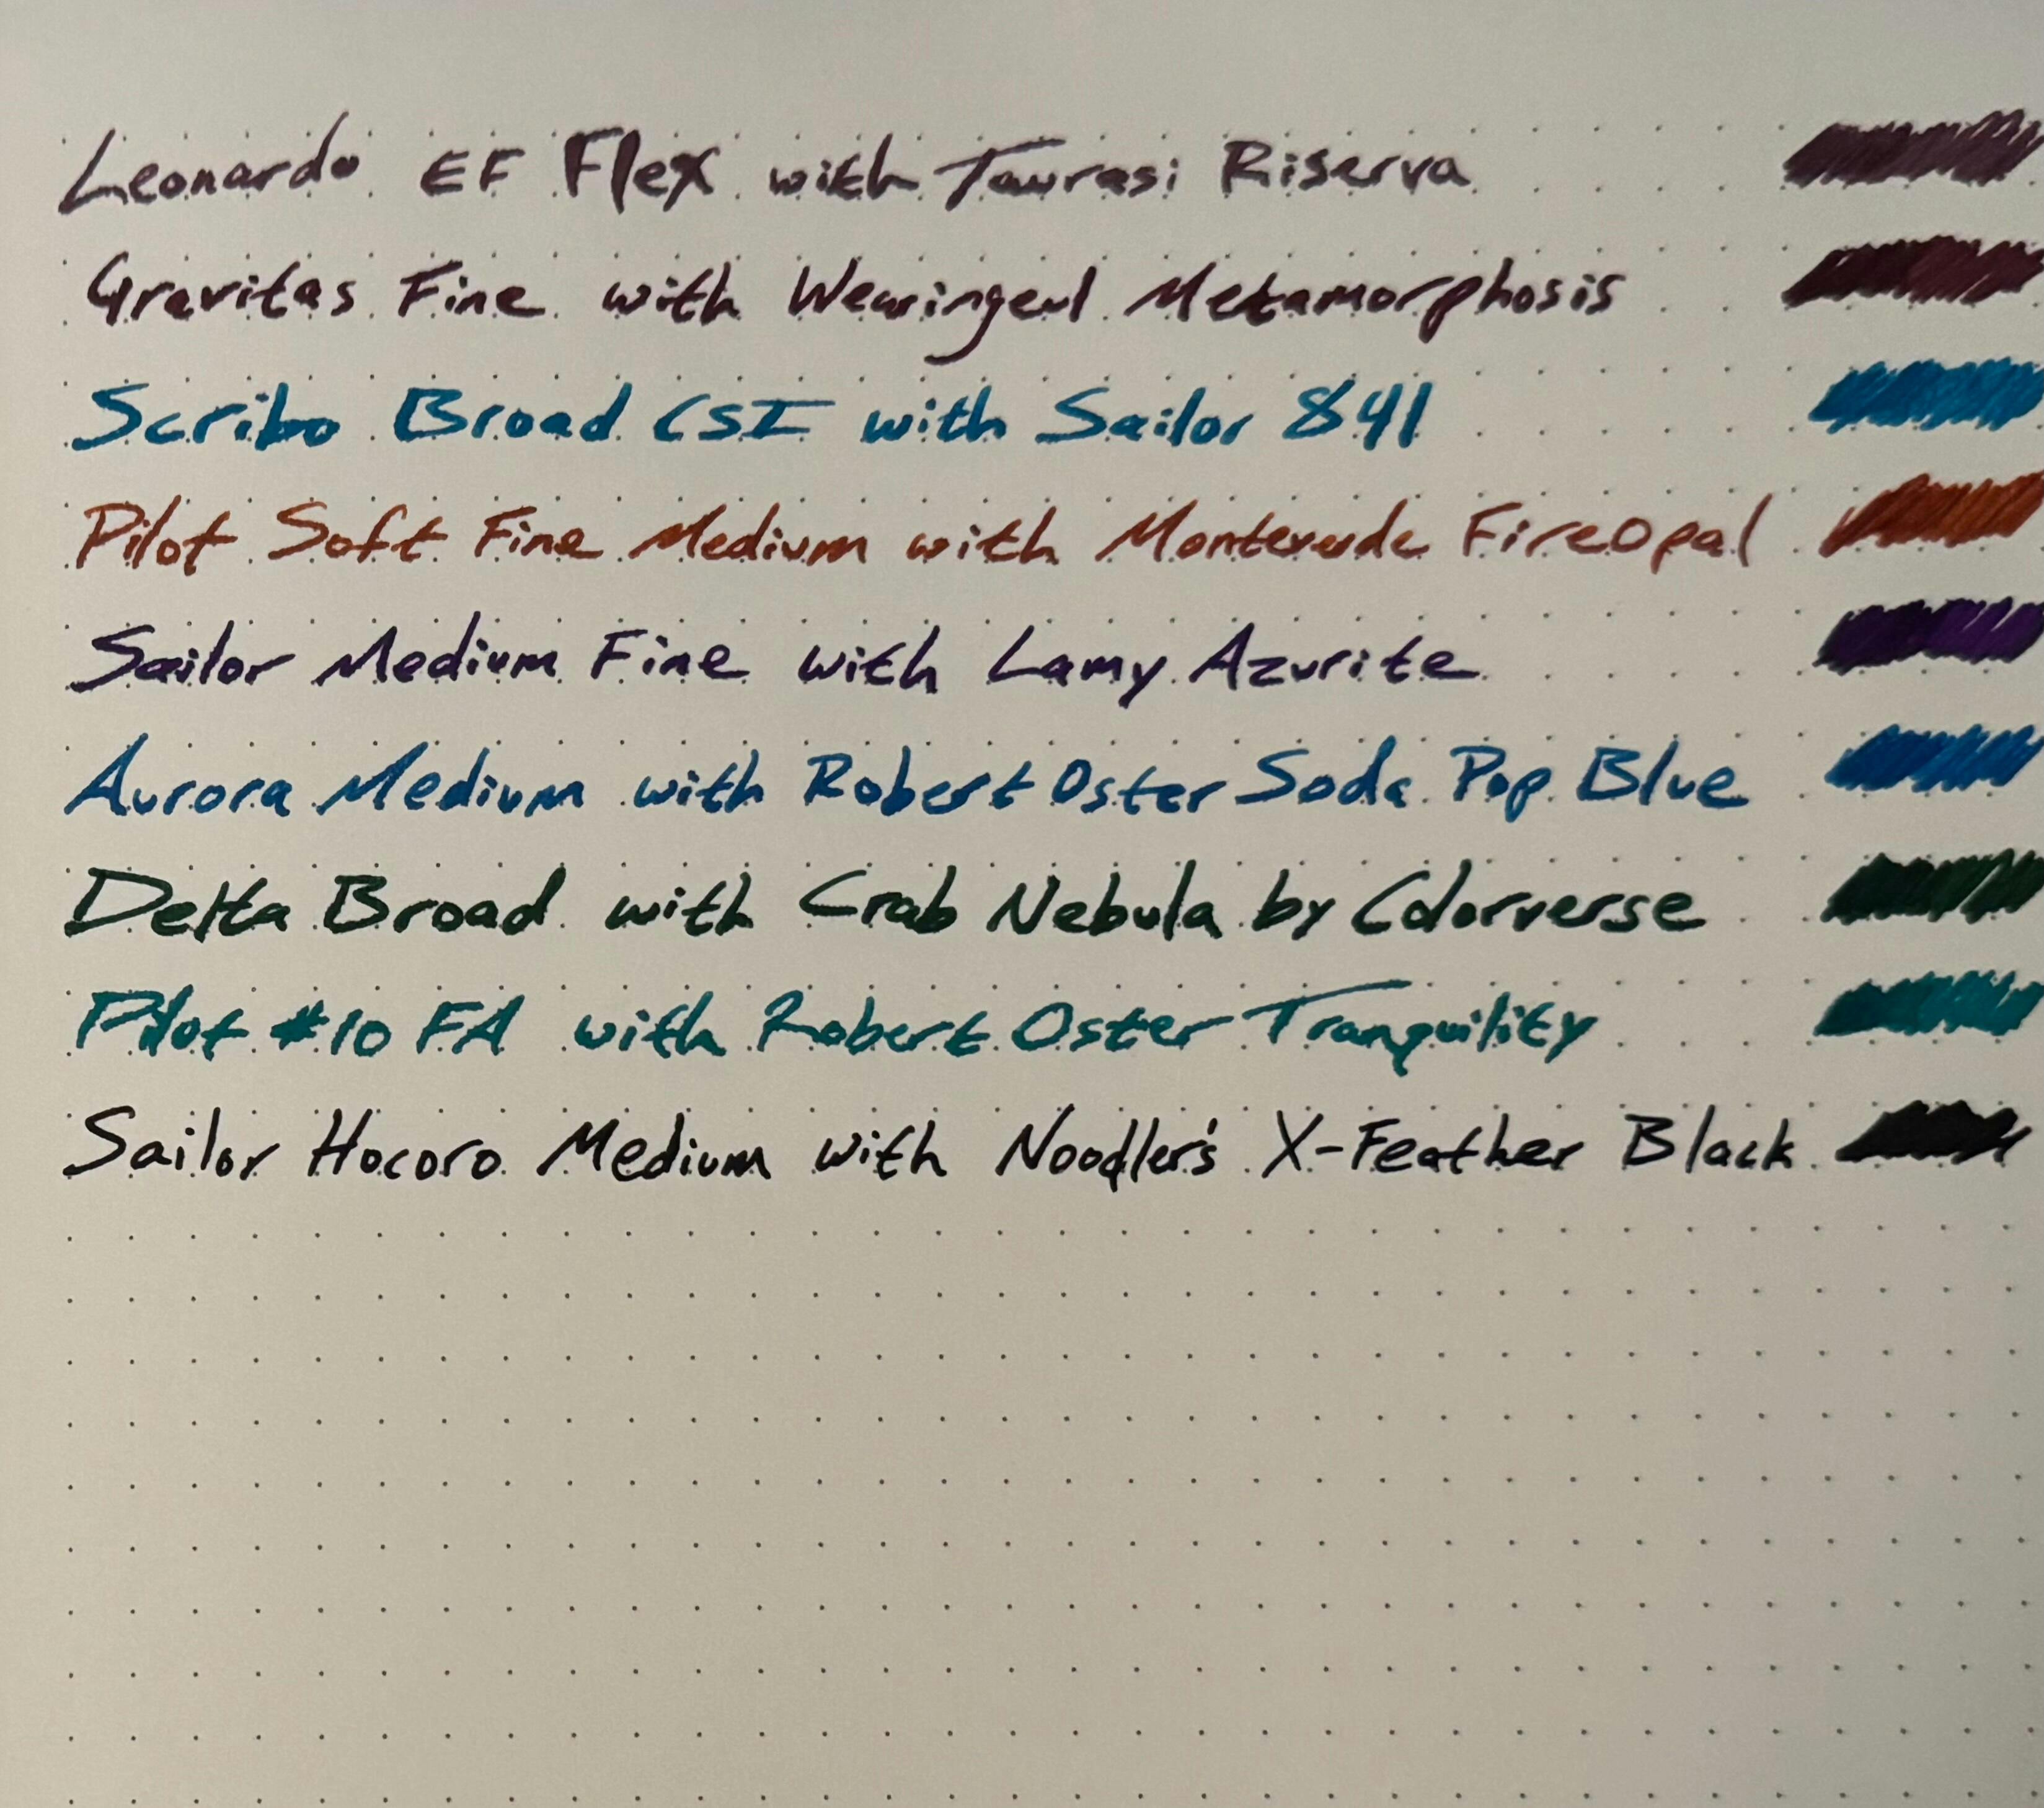 Leonardo EF Flex with Taurasi Riserva
Gravitas Fine with Wearingeul Metamorphosis
Scribo Broad CSI with Sailor 841
Pilot Soft Fine Medium with Monteverde Fire Opal
Sailor Medium Fine with Lamy Azurite
Aurora Medium with Robert Oster Soda Pop Blue
Delta Broad with Crab Nebula by Colorverse
Pilot #10 FA with Robert Oster Tranquility
Sailor Hocoro Medium with Noodler's X-Feather Black